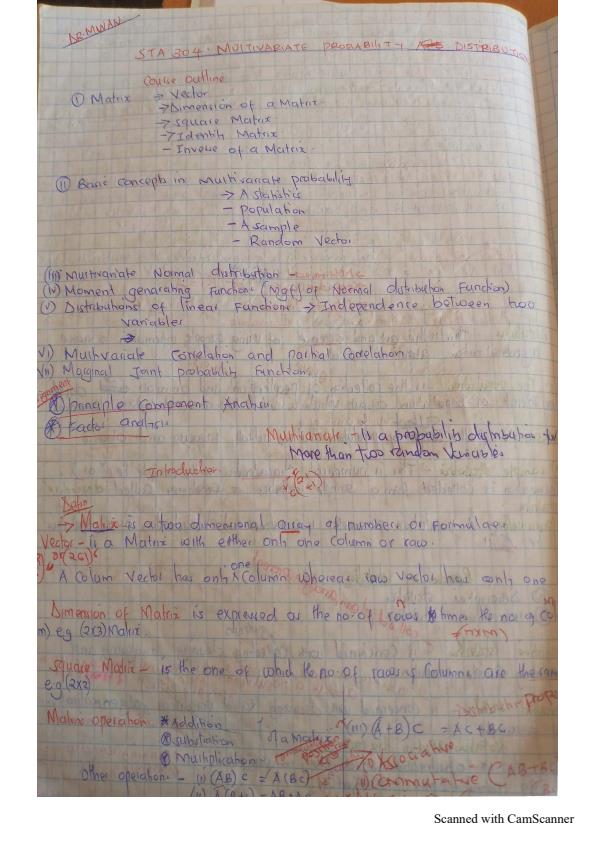 DR. MWAN
STA 304. MULTIVARIATE PROBABILITY DISTRIBUTION
Course outline
(i) Matrix → Vector
→ Dimension of a Matrix
→ square Matrix
→ Identity Matrix
- Inverse of a Matrix.
(ii) Basic concepts in Multivariate probability
→ A statistics
- Population
- A sample
- Random Vector
(iii) Multivariate Normal distribution -
(iv) Moment generating Functions (Mgf) of Normal distribution Function)
(v) Distributions of linear Functions → Independence between two
Variables
→
vi) Multivariate Correlation and partial Correlation
vii) Marginal Joint probability Functions
* Principle Component Analysis
* Factor analysis
Multivariate - is a probability distribution for
More than two random Variables
Introduction
Defin
→ Matrix is a two dimensional array of numbers or Formulae.
Vector - is a Matrix with either only one Column or raw.
or (2 6 1)
one
A Colum Vector has only ^ Column whereas raw Vector has only one
Dimension of Matrix is expressed as the no. of rows times the no. of Co
m) eg (2x3) Matrix. (n×m)
square Matrix - is the one of which the no. of raws & Columns are the same
e.g (2x2)
Matrix operation * Addition of a Matrix (iii) (A + B) C = AC + BC
* substration
* Multiplication (i) Associative
Other operation - (i) (AB) C = A(BC) (ii) Commutative